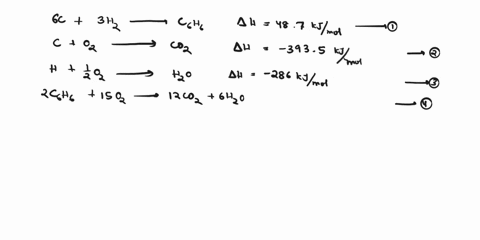 6C + 3H₂ ⟶ C₆H₆ ΔH = 48.7 kJ/mol ⟶ ①
C + O₂ ⟶ CO₂ ΔH = -393.5 kJ/mol ⟶ ②
H + ½O₂ ⟶ H₂O ΔH = -286 kJ/mol ⟶ ③
2C₆H₆ + 15O₂ ⟶ 12CO₂ + 6H₂O ⟶ ④